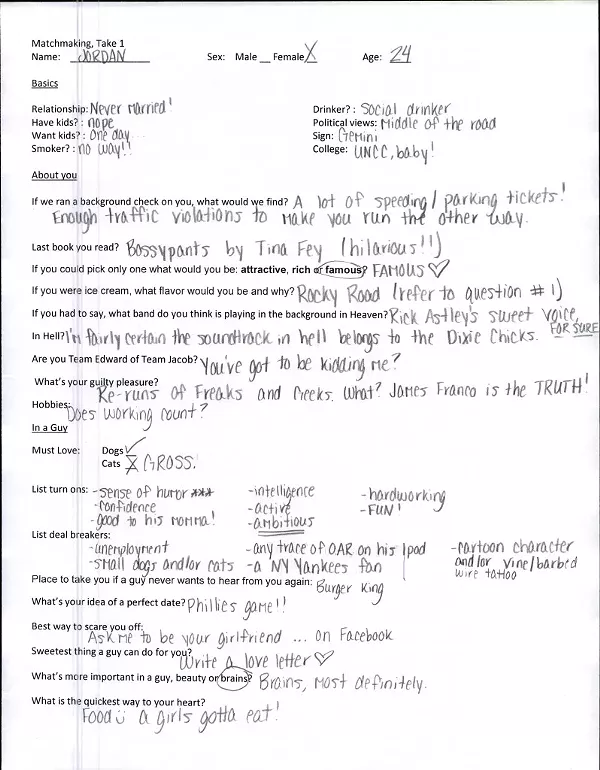 Matchmaking, Take 1
Name: JORDAN Sex: Male __ Female X Age: 24
Basics
Relationship: Never married! Drinker? : Social drinker
Have kids? : nope Political views: Middle of the road
Want kids? : One day Sign: Gemini
Smoker? : no way!! College: UNCC, baby!
About you
If we ran a background check on you, what would we find? A lot of speeding/parking tickets!
Enough traffic violations to make you run the other way.
Last book you read? Bossypants by Tina Fey (hilarious!!)
If you could pick only one what would you be: attractive, rich or famous? FAMOUS ♡
If you were ice cream, what flavor would you be and why? Rocky Road (refer to question #1)
If you had to say, what band do you think is playing in the background in Heaven? Rick Astley's sweet voice,
FOR SURE
In Hell? I'm fairly certain the soundtrack in hell belongs to the Dixie Chicks.
Are you Team Edward of Team Jacob? You've got to be kidding me?
What's your guilty pleasure?
Re-runs of Freaks and Geeks. What? James Franco is the TRUTH!
Hobbies:
Does working count?
In a Guy
Must Love: Dogs ✓
Cats X GROSS!
List turn ons: -sense of humor *** -intelligence -hardworking
-confidence -active -FUN!
-good to his momma! -ambitious
List deal breakers:
-unemployment -any trace of OAR on his Ipod -cartoon character
-small dogs and/or cats -a NY Yankees fan and/or vine/barbed
wire tattoo
Place to take you if a guy never wants to hear from you again: Burger King
What's your idea of a perfect date? Phillies game!!
Best way to scare you off:
Ask me to be your girlfriend ... on Facebook
Sweetest thing a guy can do for you?
Write a love letter ♡
What's more important in a guy, beauty or brains? Brains, most definitely.
What is the quickest way to your heart?
Food ü a girls gotta eat!